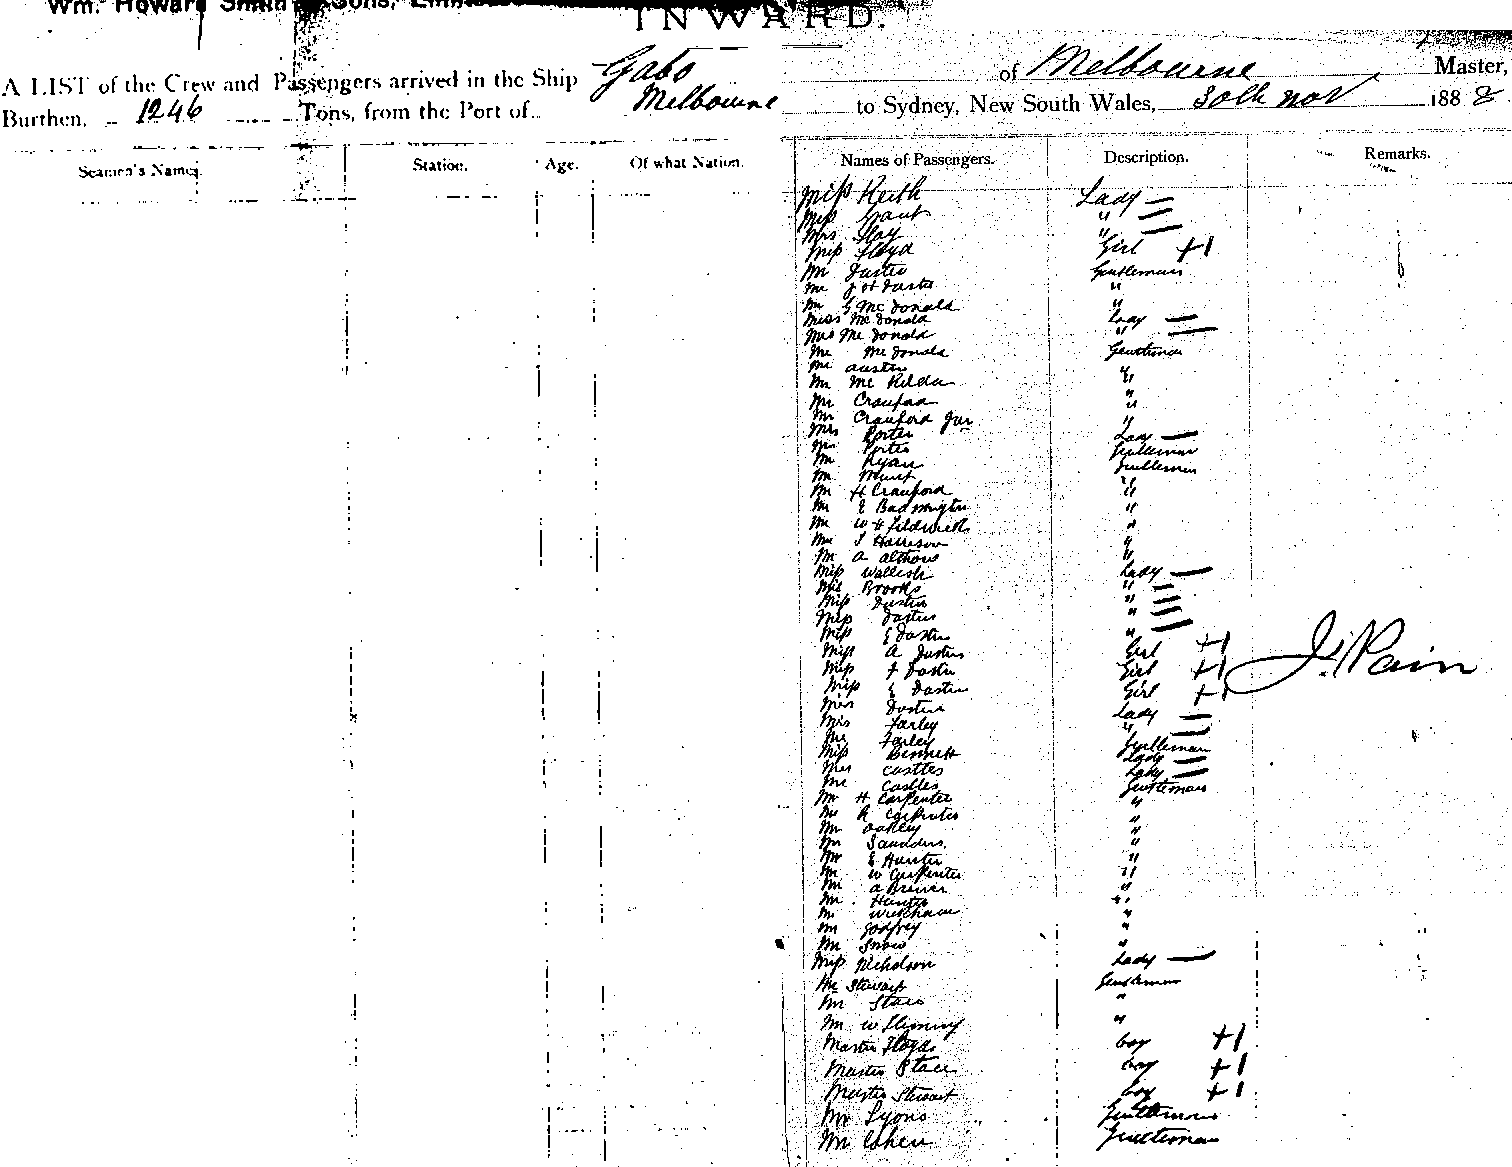 Wm. Howard Smith & Sons,
INWARD.
A LIST of the Crew and Passengers arrived in the Ship Gabo of Melbourne Master,
Burthen, 1246 Tons, from the Port of Melbourne to Sydney, New South Wales, 30th Nov 1888
Seamen's Names. Station. Age. Of what Nation. Names of Passengers. Description. Remarks.
Miss Keith Lady
Miss Grant "
Mrs "
Miss Floyd Girl +1
Mr Gentleman
Mr "
Mr G McDonald "
Miss McDonald Lady
Mrs McDonald "
Mr McDonald Gentleman
Mr Austin "
Mr "
Mr Crauford "
Mr Crauford Jnr "
Mrs Porter Lady
Mr Porter Gentleman
Mr Ryan Gentleman
Mr "
Mr H Crauford "
Mr E "
Mr W H "
Mr Harrison "
Mr A "
Miss Lady
Miss Brooks "
Miss "
Miss "
Miss E "
Miss A Girl +1
Miss Girl +1
Miss E Girl +1
J. Pain
Mrs Lady
Mrs Farley "
Mr Farley Gentleman
Miss Bennett Lady
Mrs Castles Lady
Mr Castles Gentleman
Mr H Carpenter "
Mr R Carpenter "
Mr Oakley "
Mr Saunders. "
Mr E Hunter "
Mr W Carpenter "
Mr A Brewer "
Mr Hunter "
Mr Wickham "
Mr Godfrey "
Mr Snow "
Miss Nicholson Lady
Mr Stewart Gentleman
Mr Stace "
Mr W Fleming "
Master Floyd boy +1
Master Stace boy +1
Master Stewart boy +1
Mr Lyons Gentleman
Mr Cohen Gentleman